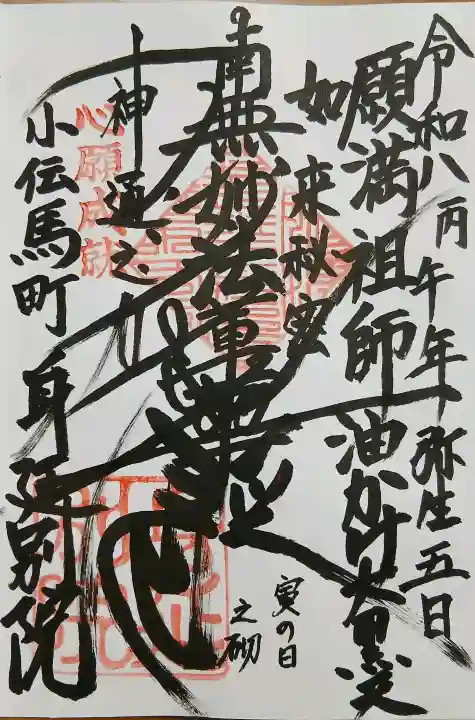 令和八丙午年 弥生五日
願満祖師 油かけ大黒天
如来秘密
南無妙法蓮華経
神通之力
心願成就
小伝馬町 身延別院
寅の日
之砌